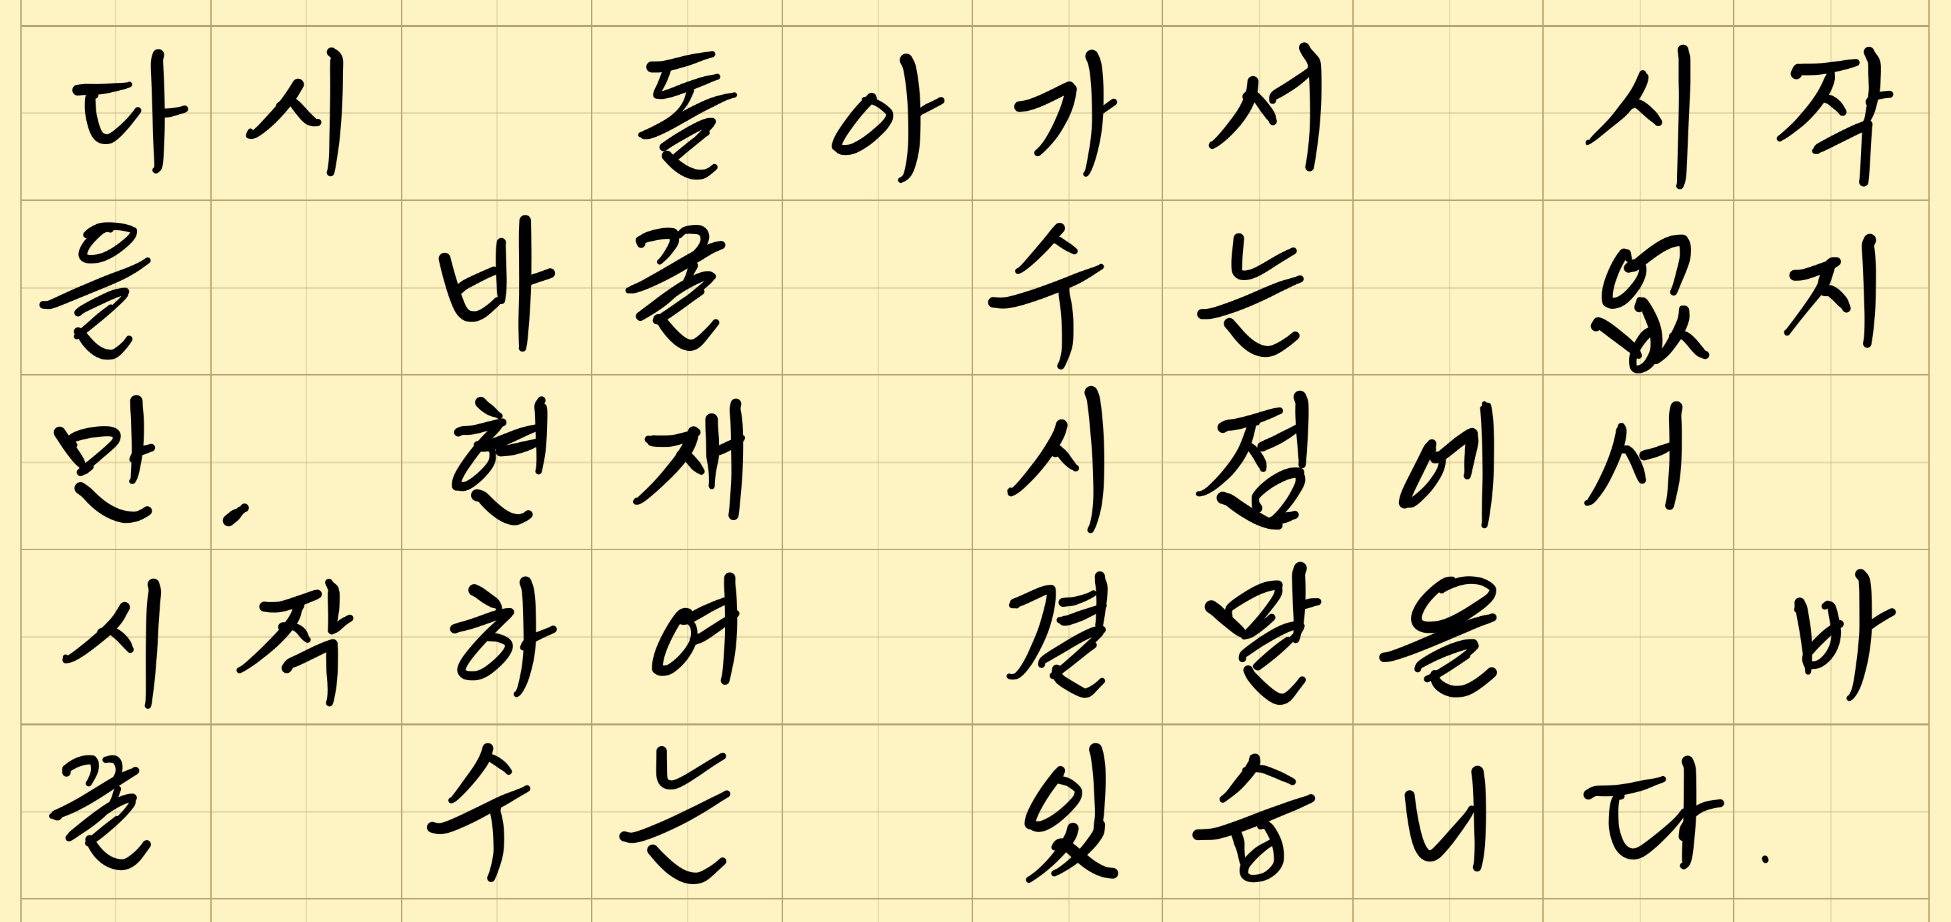 다시 돌아가서 시작
을 바꿀 수는 없지
만, 현재 시점에서
시작하여 결말을 바
꿀 수는 있습니다.